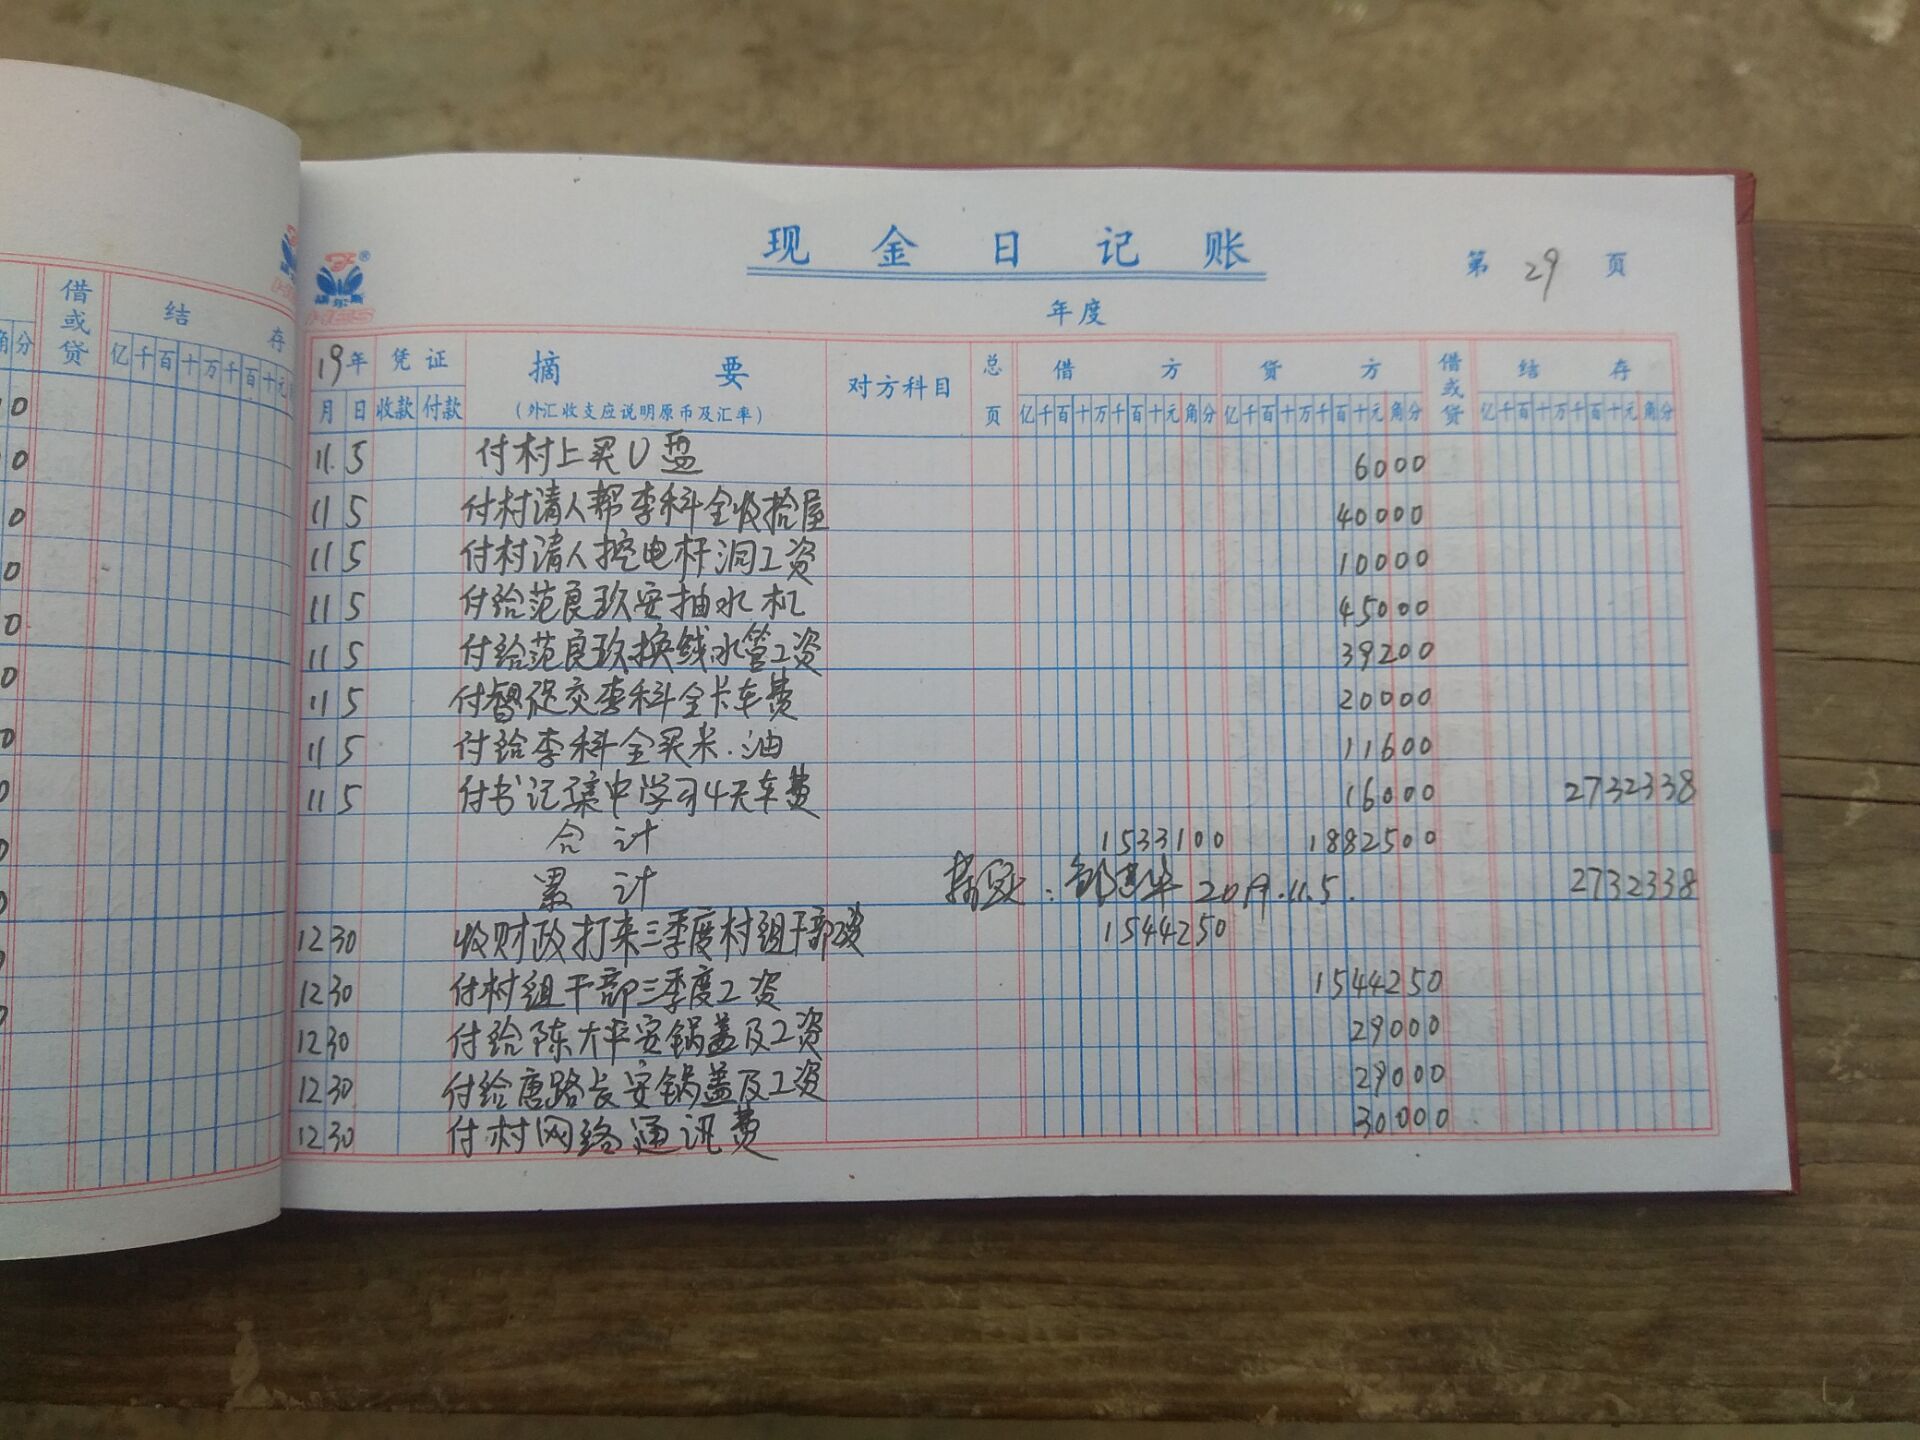 现金日记账
第 29 页
年度
借或贷 结存
角分 亿千百十万千百十元
19年 凭证 摘要 对方科目 总页 借方 贷方 借或贷 结存
月 日 收款 付款 (外汇收支应说明原币及汇率) 亿千百十万千百十元角分 亿千百十万千百十元角分 亿千百十万千百十元角分
11.5 付村上买U盘 6000
11 5 付村请人帮李科全收拾屋 40000
11 5 付村请人挖电杆洞工资 10000
11 5 付给范良玖安抽水机 45000
11 5 付给范良玖换线水管工资 39200
11 5 付 交李科全卡车费 20000
11 5 付给李科全买米.油 11600
11 5 付书记集中学习4天车费 16000 2732338
合计 1533100 1882500
累计 2019.11.5. 2732338
12 30 收财政打来三季度村组干部工资 1544250
12 30 付村组干部三季度工资 1544250
12 30 付给陈大平安锅盖及工资 29000
12 30 付给唐路长安锅盖及工资 29000
12 30 付村网络通讯费 30000